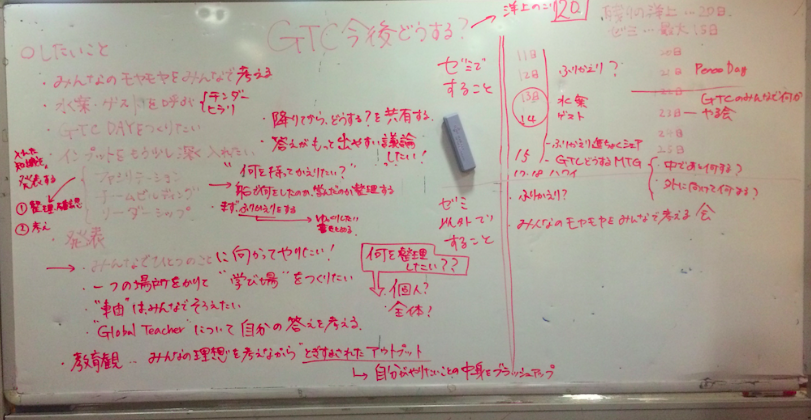 GTC今後どうする?
洋上のこり20
残りの洋上…20日
ゼミ…最大15日
○したいこと
・みんなのモヤモヤをみんなで考える
・水案・ゲストを呼ぶ
・GTC DAYをつくりたい
・インプットをもう少し深く入れたい
ファシリテーション
チームビルディング
リーダーシップ
発表する
①整理
②考え
・発表
・降りてから、どうする?を共有する。
・答えがもっと出やすい議論したい!
"何を持ってかえりたい?"
まず、ふりかえりをする
→みんなでひとつのことに向かってやりたい!
・一つの場所をかりて"学び場"をつくりたい
・"軸"はみんなでそろえたい
・"Global Teacher"について自分の答えを考える。
・教育観…みんなの理想を考えながら"とぎすまされたアウトプット
↳自分がやりたいことの中身をブラッシュアップ
何を整理したい??
・個人?
・全体?
ゼミですること
11日
12日 ふりかえり?
13日 水案
14 ゲスト
・ふりかえり進ちょくシェア
15 ・GTCどうするMTG
17.18 ハワイ
・中でおし何する?
・外に向けて何する?
20日
21日 Peace Day
GTCのみんなで何か
23日ーやる会
24日
25日
ゼミ以外ですること
ふりかえり?
みんなのモヤモヤをみんなで考える会